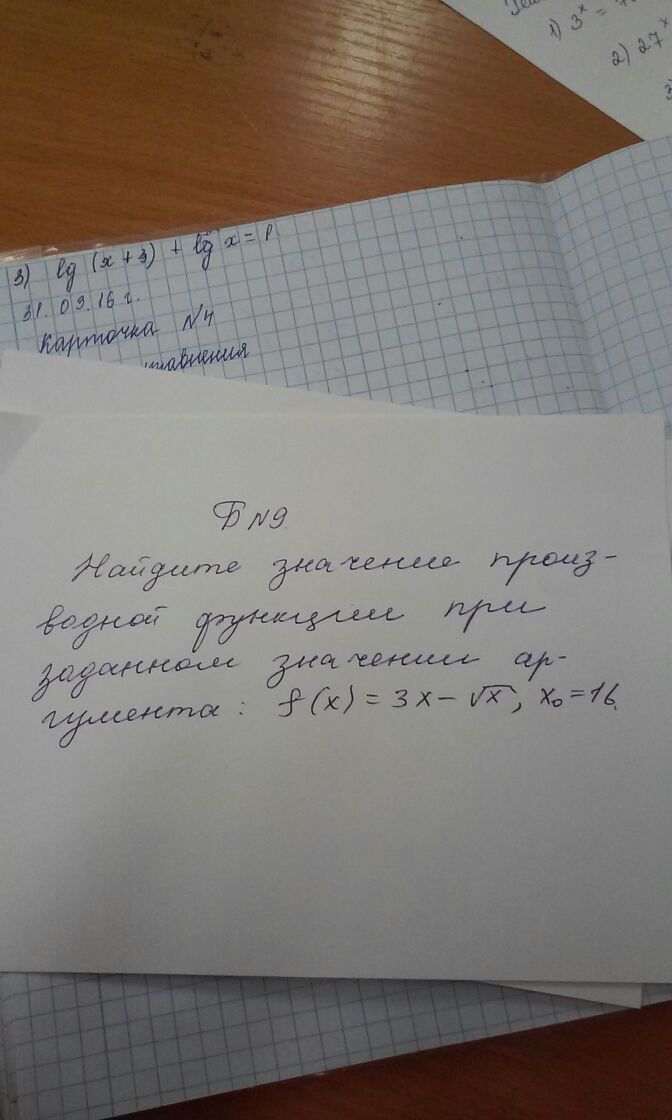 1) 3ˣ = 7
2) 27ˣ
3) lg (x + 3) + lg x = 1
31. 03. 16 г.
Карточка №4
Б №9
Найдите значение произ-
водной функции при
заданном значении ар-
гумента: f(x) = 3x - √x, x₀ = 16.